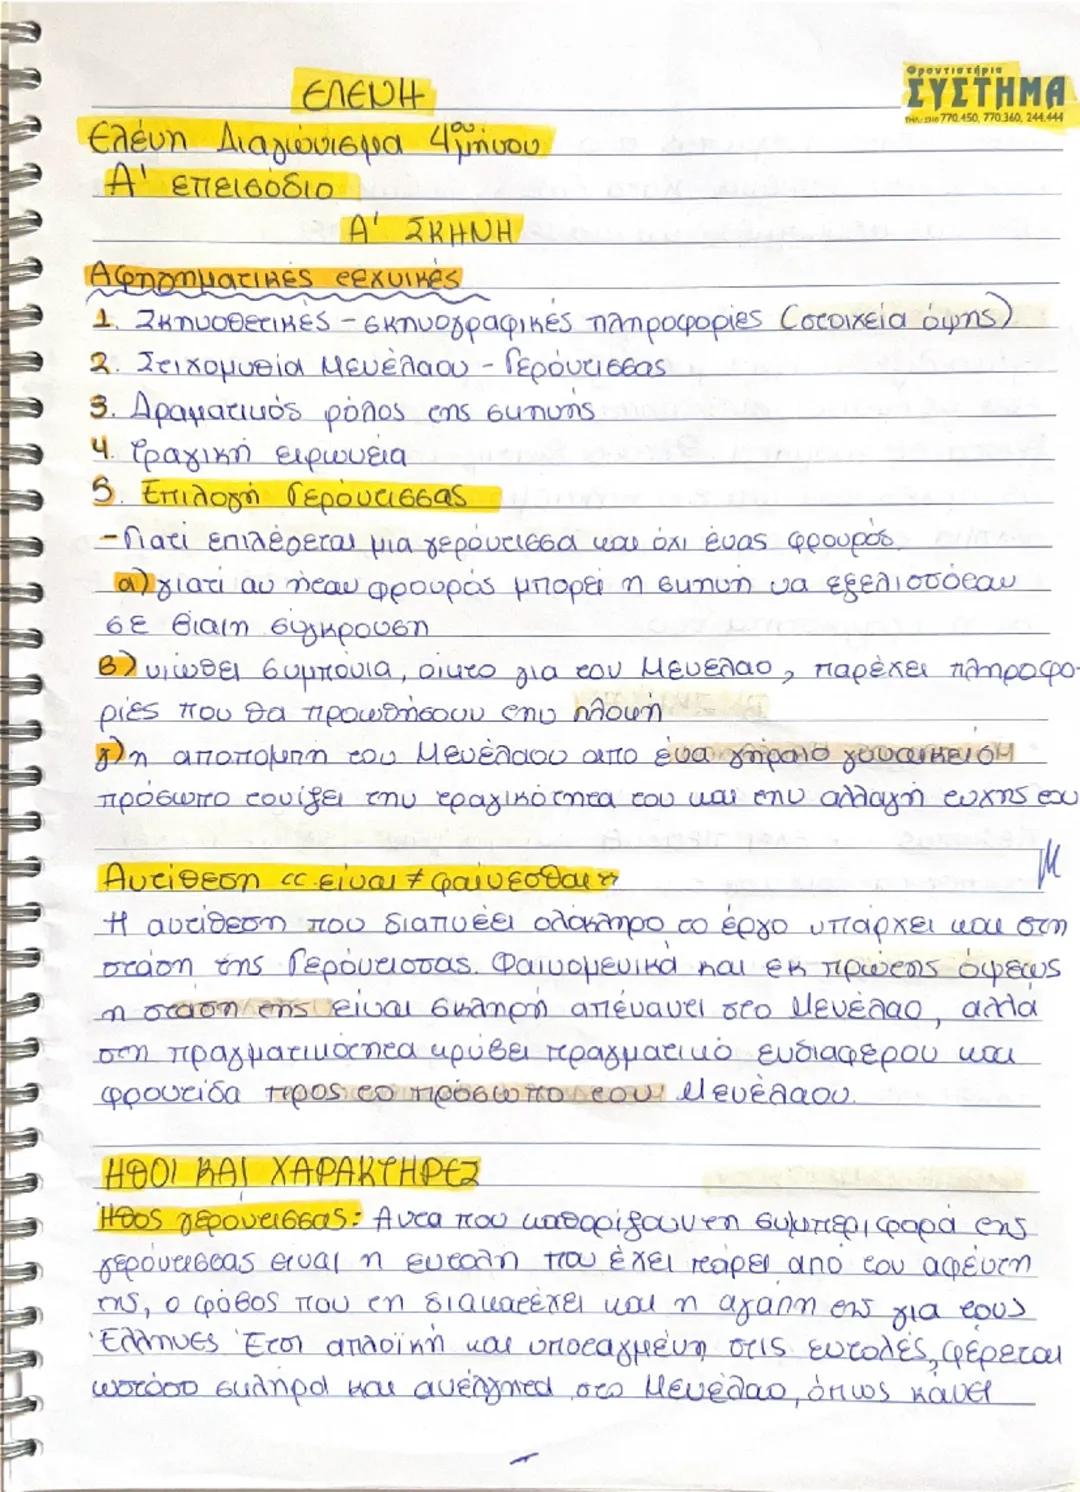 ΕΛΕΝΗ
Φροντιστήρια
ΣΥΣΤΗΜΑ
ΤΗΛ.: 2310 770.450, 770.360, 244.444
Ελένη Διαγώνισμα 4ου μήνου
Α' επεισόδιο
Α' ΣΚΗΝΗ
Αφηγηματικές τεχνικές
1. Σκηνοθετικές - σκηνογραφικές πληροφορίες (στοιχεία όψης)
2. Στιχομυθία Μενέλαου - Γερόντισσας
3. Δραματικός ρόλος της σκηνής
4. Τραγική ειρωνεία
5. Επιλογή Γερόντισσας
- Γιατί επιλέγεται μια γερόντισσα και όχι ένας φρουρός
α) γιατί αν ήταν φρουρός μπορεί η σκηνή να εξελισσόταν
σε βίαιη σύγκρουση
β) νιώθει συμπόνια, οίκτο για τον Μενέλαο, παρέχει πληροφο-
ρίες που θα προωθήσουν την πλοκή
γ) η αποπομπή του Μενέλαου απο ένα γηραιό γυναικείο
πρόσωπο τονίζει την τραγικότητα του και την αλλαγή τύχης του
Μ
Αντίθεση << είναι ≠ φαίνεσθαι >>
Η αντίθεση που διαπνέει ολόκληρο το έργο υπάρχει και στη
στάση της Γερόντισσας. Φαινομενικά και εκ πρώτης όψεως
η στάση της είναι σκληρή απέναντι στο Μενέλαο, αλλά
στη πραγματικότητα κρύβει πραγματικό ενδιαφέρον και
φροντίδα προς το πρόσωπο του Μενέλαου.
ΗΘΟΙ ΚΑΙ ΧΑΡΑΚΤΗΡΕΣ
Ήθος γερόντισσας: Αυτά που καθορίζουν τη συμπεριφορά της
γερόντισσας είναι η εντολή που έχει πάρει από τον αφέντη
της, ο φόβος που τη διακατέχει και η αγάπη της για τους
Έλληνες Έτσι απλοϊκή και υποταγμένη στις εντολές, φέρεται
ωστόσο σκληρά και ανέλγητα στο Μενέλαο, όπως κάνει